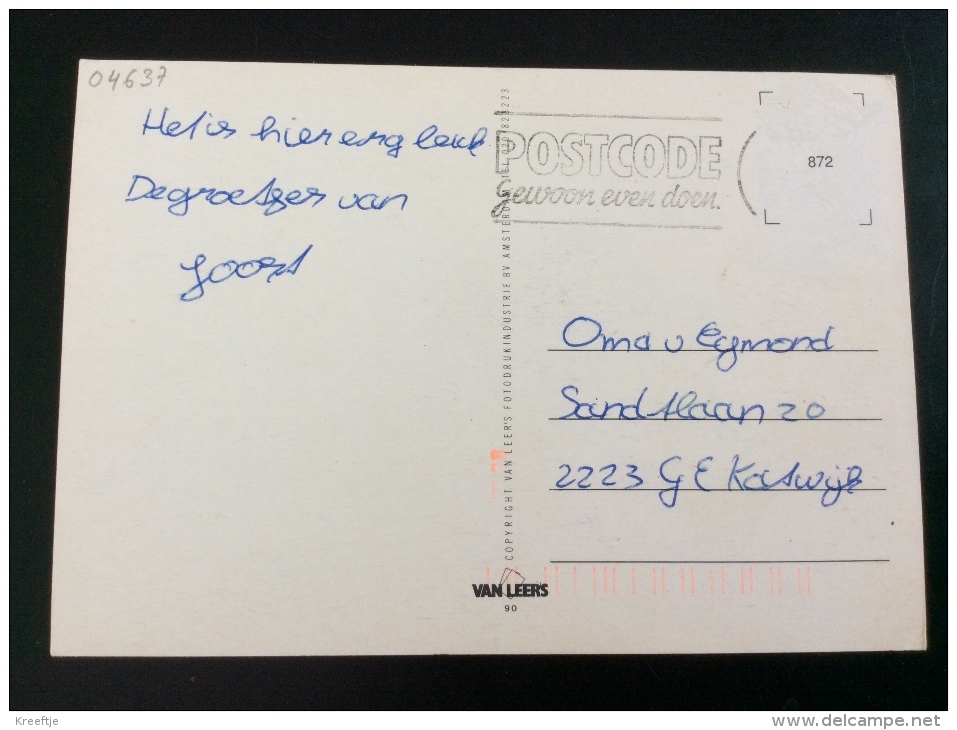 04637
Het is hier erg leuk
De groetjes van
Joost
POSTCODE
Gewoon even doen.
872
COPYRIGHT VAN LEER'S FOTODRUKINDUSTRIE BV AMSTERDAM
Oma v Egmond
Sandtlaan 20
2223 GE Katwijk
VAN LEERS
90
Kreeftje
delcampe.net